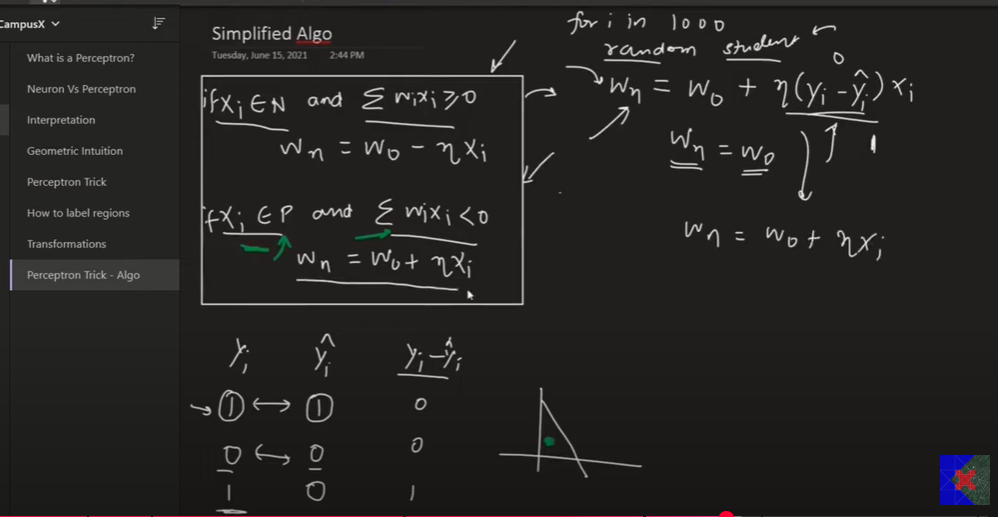 CampusX
What is a Perceptron?
Neuron Vs Perceptron
Interpretation
Geometric Intuition
Perceptron Trick
How to label regions
Transformations
Perceptron Trick - Algo
Simplified Algo
Tuesday, June 15, 2021 2:44 PM
if xᵢ ∈ N and Σ wᵢxᵢ ≥ 0
wₙ = w₀ - ηxᵢ
if xᵢ ∈ P and Σ wᵢxᵢ < 0
wₙ = w₀ + ηxᵢ
for i in 1000
random student
0
wₙ = w₀ + η(yᵢ - ŷᵢ) xᵢ
1
wₙ = w₀
wₙ = w₀ + ηxᵢ
yᵢ ŷᵢ yᵢ - ŷᵢ
1 1 0
0 0 0
1 0 1